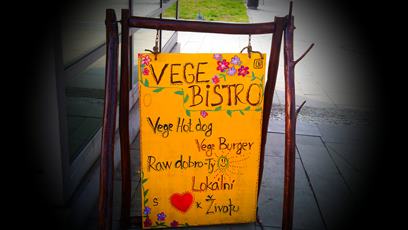 VEGE
BISTRO
Vege Hot dog
Vege Burger
Raw dobro-ty
Lokální
S ❤ k Životu